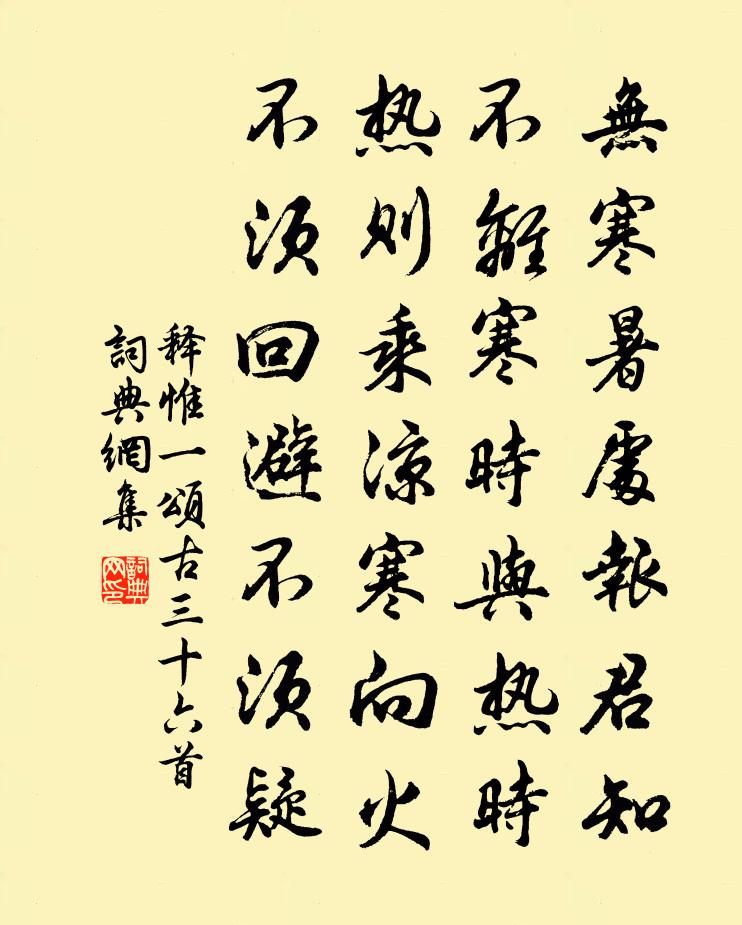 無寒暑處報君知
不離寒時與热時
热则乘凉寒向火
不须回避不须疑
释惟一頌古三十六首
詞典網集
詞典网印